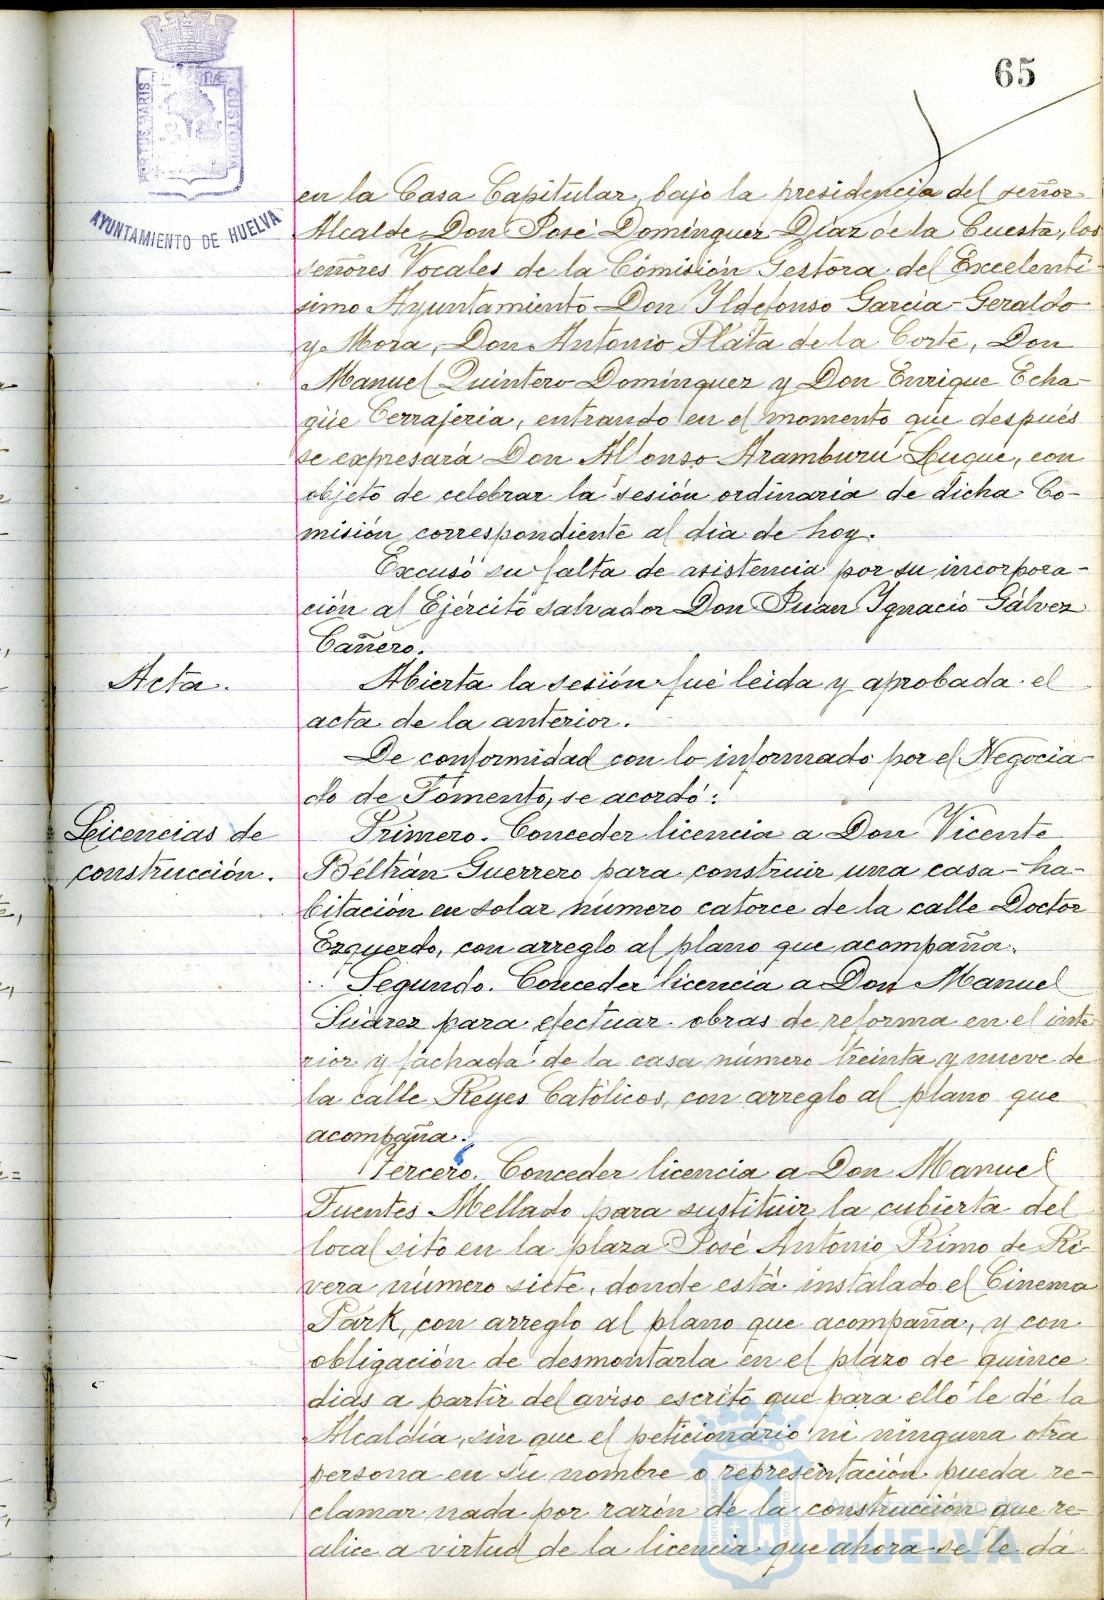 65
PORTUS MARIS
CUSTODIA
AYUNTAMIENTO DE HUELVA
en la Casa Capitular, bajo la presidencia del señor
Alcalde Don José Domínguez Díaz de la Cuesta, los
señores Vocales de la Comisión Gestora del Excelentí-
simo Ayuntamiento Don Ildefonso García-Geraldo
y Mora, Don Antonio Plata de la Corte, Don
Manuel Quintero Domínguez y Don Enrique Echa-
güe Cerrajería, entrando en el momento que después
se expresará Don Alfonso Aramburu Luque, con
objeto de celebrar la sesión ordinaria de dicha Co-
misión correspondiente al día de hoy.
Excusó su falta de asistencia por su incorpora-
ción al Ejército salvador Don Juan Ignacio Gálvez
Cañero.
Acta.
Abierta la sesión fué leida y aprobada el
acta de la anterior.
De conformidad con lo informado por el Negocia-
do de Fomento, se acordó:
Licencias de
construcción.
Primero. Conceder licencia a Don Vicente
Beltrán Guerrero para construir una casa-ha-
bitación en solar número catorce de la calle Doctor
Ezquerdo, con arreglo al plano que acompaña.
Segundo. Conceder licencia a Don Manuel
Suárez para efectuar obras de reforma en el inte-
rior y fachada de la casa número treinta y nueve de
la calle Reyes Católicos, con arreglo al plano que
acompaña.
Tercero. Conceder licencia a Don Manuel
Fuentes Mellado para sustituir la cubierta del
local sito en la plaza José Antonio Primo de Ri-
vera número siete, donde está instalado el Cinema
Park, con arreglo al plano que acompaña, y con
obligación de desmontarla en el plazo de quince
dias a partir del aviso escrito que para ello le dé la
Alcaldía, sin que el peticionario ni ninguna otra
persona en su nombre o representación pueda re-
clamar nada por razón de la construcción que re-
alice a virtud de la licencia que ahora se le dá
Ayuntamiento de
HUELVA